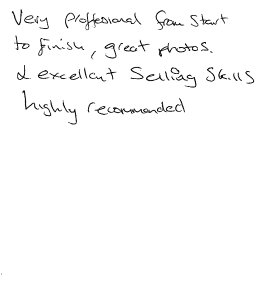 Very professional from start
to finish, great photos.
& excellent Selling Skills
highly recommended